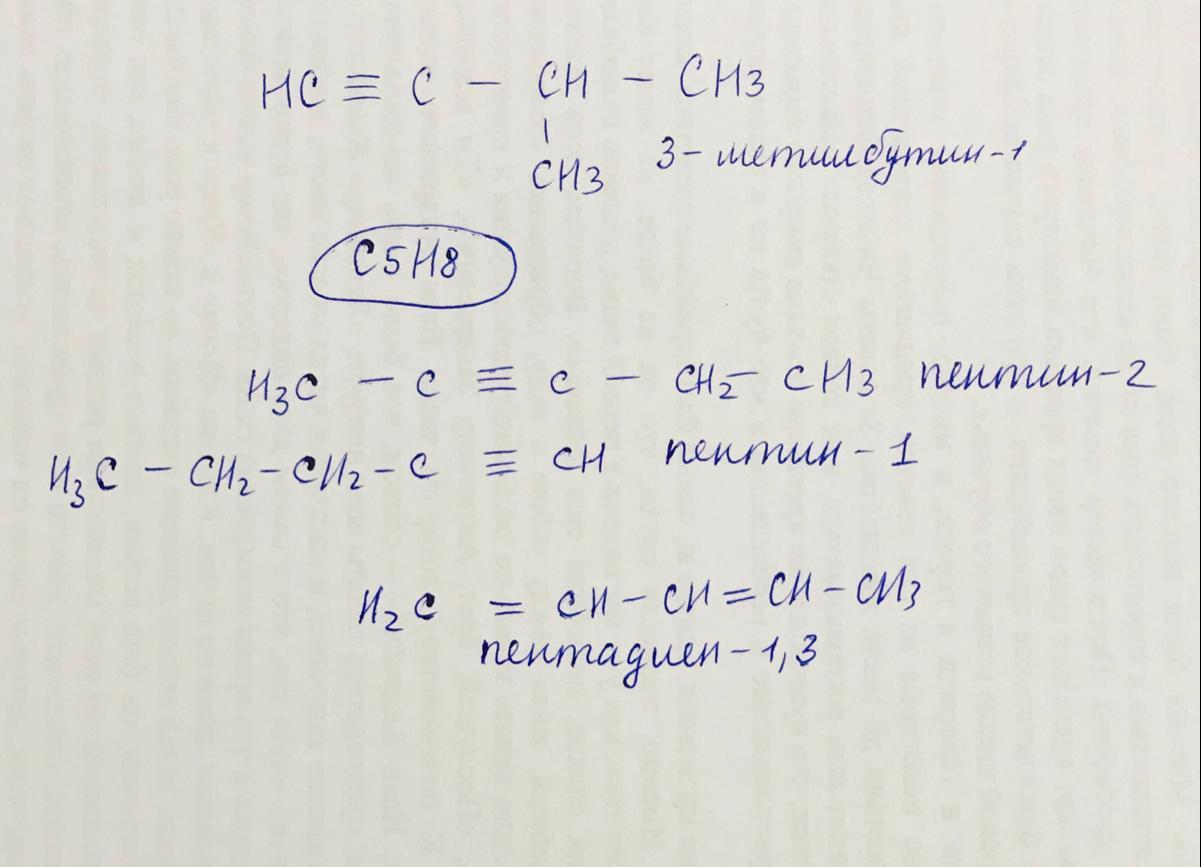 HC ≡ C – CH – CH3
CH3
3-метилбутин-1
C5H8
H3C – C ≡ C – CH2 – CH3 пентин-2
H3C – CH2 – CH2 – C ≡ CH пентин-1
H2C = CH – CH = CH – CH3
пентадиен-1,3